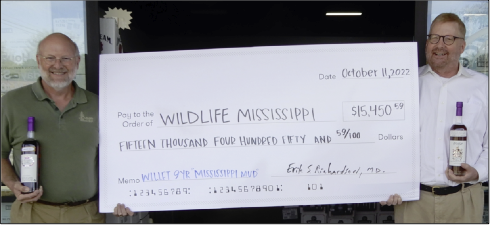 Date October 11, 2022
Pay to the
Order of WILDLIFE MISSISSIPPI $15,450 59
FIFTEEN THOUSAND FOUR HUNDRED FIFTY AND 59/100 Dollars
Memo WILLET 8YR MISSISSIPPI MUD Erik S Richardson, M.D.
⑆123456789⑆ ⑆1234567890⑆ 101